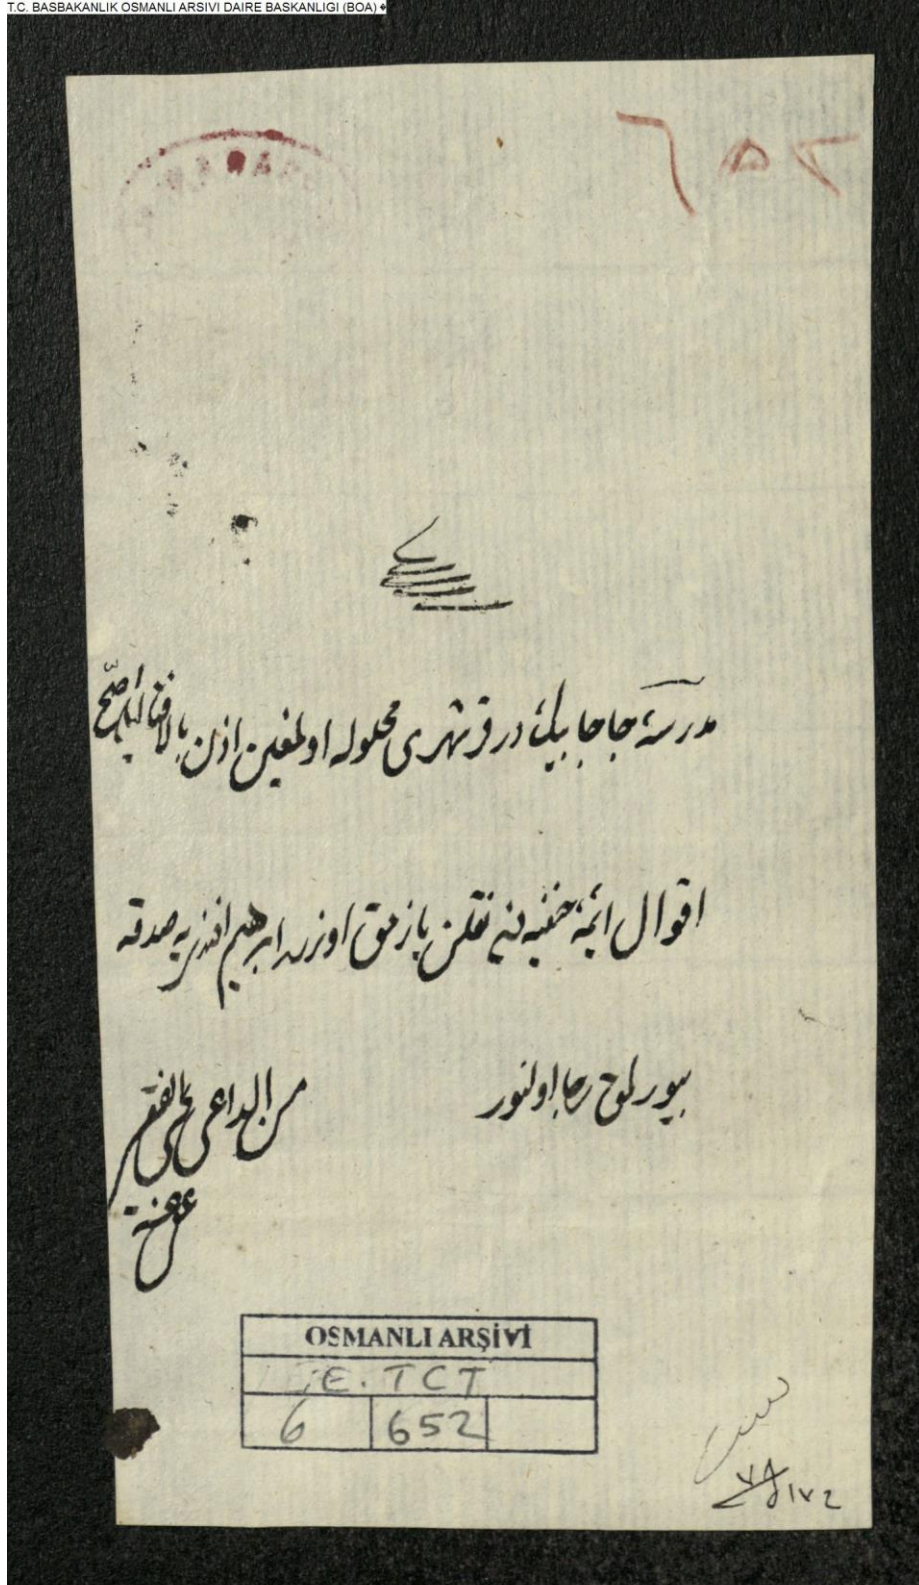 T.C. BASBAKANLIK OSMANLI ARSIVI DAIRE BASKANLIGI (BOA) �
٦٥٢
مدرسهٔ جاجا بیك در قرشهری محلوله اولمغین اذن بالافتا ایله اصح
اقوال ائمهٔ حنفیه دن نقلن یازمق اوزره ابراهیم افندی یه صدقه
بیورلمق رجا اولنور
من الداعی الفقیر
عفی عنه
OSMANLI ARŞİVİ
İE. TCT
6 652